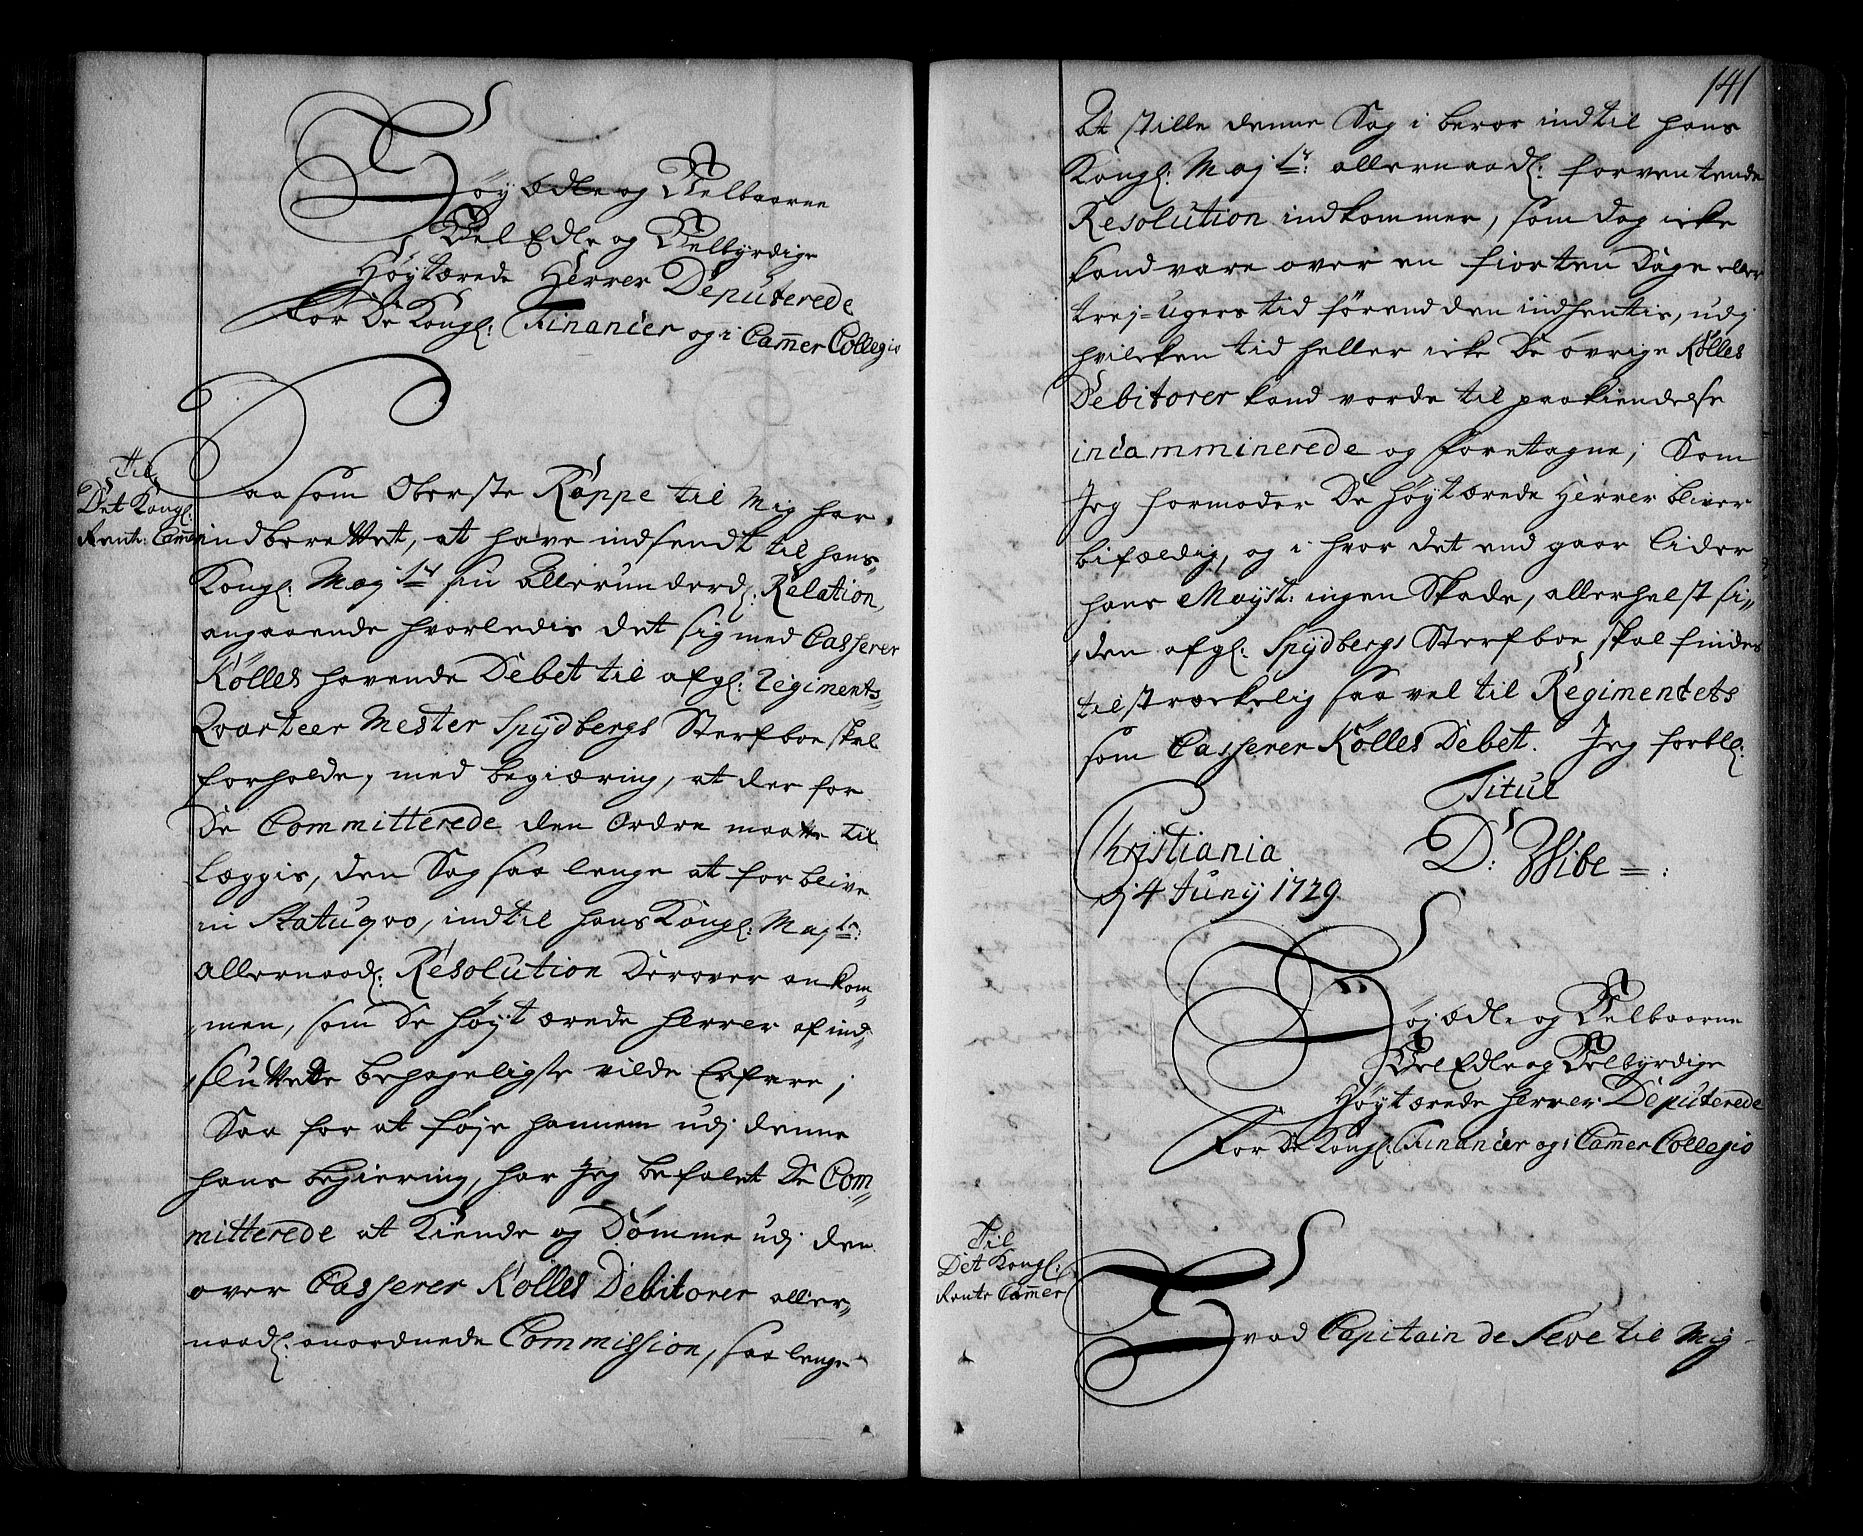 Høy Ædle og Velbaarne
Vel Edle og Velbyrdige
Høyt ærede Herrer Deputerede
for De Kongl: Financer og i Cam̄er Collegio
Til
Det Kongl:
Rente Cam̄er
Saasom Oberste Rappe til Mig har
indberettet, at have indsendt til hans
Kongl: Maj:ts sin allerunderd: Relation,
angaaende hvorledis det sig med Casserer
Kølles havende Debet til afgl: Regiments
Qvarteer Mester Spÿdbergs Sterfboe skal
forholde, med begiæring, at der for
De Committerede den Ordre maatte til
Læggis, den Sag saa lenge at forblive
in Statuqvo, indtil hans Kongl: Maj:ts
Allernaad: Resolution derover ankom„
„men, som De Høyt ærede Herrer af ind„
„sluttede behageligste vilde Erfare;
Saa for at føje hannem udj denne
hans begiering, har Jeg befalet De Com„
mitterede at Kiende og Dømme udj den
over Casserer Kølles Debitorer aller„
naad: anordnede Commission, saa lenge
141
At stille denne Sag i beroe indtil hans
Kongl: Maj:ts: allernaad: forventende
Resolution indkommer, som dog icke
kand vare over en fiorten Dage eller
trej-Ugers tid førend den indhentis, udj
hvilcken tid heller icke De øvrige Kølles
Debitorer kand vorde til paakiendelse
incamminerede og foretagne; Som
Jeg formoder De Høyt ærede Herrer bliver
bifældig, og i hvor det end gaar Lider
hans Mayst: ingen Skade, allerhelst si„
„den afgl: Spÿdbergs Sterfboe skal findes
tilstræckelig saa vel til Regimentets
som Casserer Kølles Debet. Jeg forbl:
Titul
Christiania
d: 4 Junij 1729.
D: Wibe
Høj Ædle og Velbaarne
Vel Edle og Velbyrdige
Høyt ærede Herrer Deputerede
for De Kongl: Financer og i Cam̄er Collegio
Til
Det Kongl:
Rente Cam̄er
Hvad Capitain de Seve til Mig